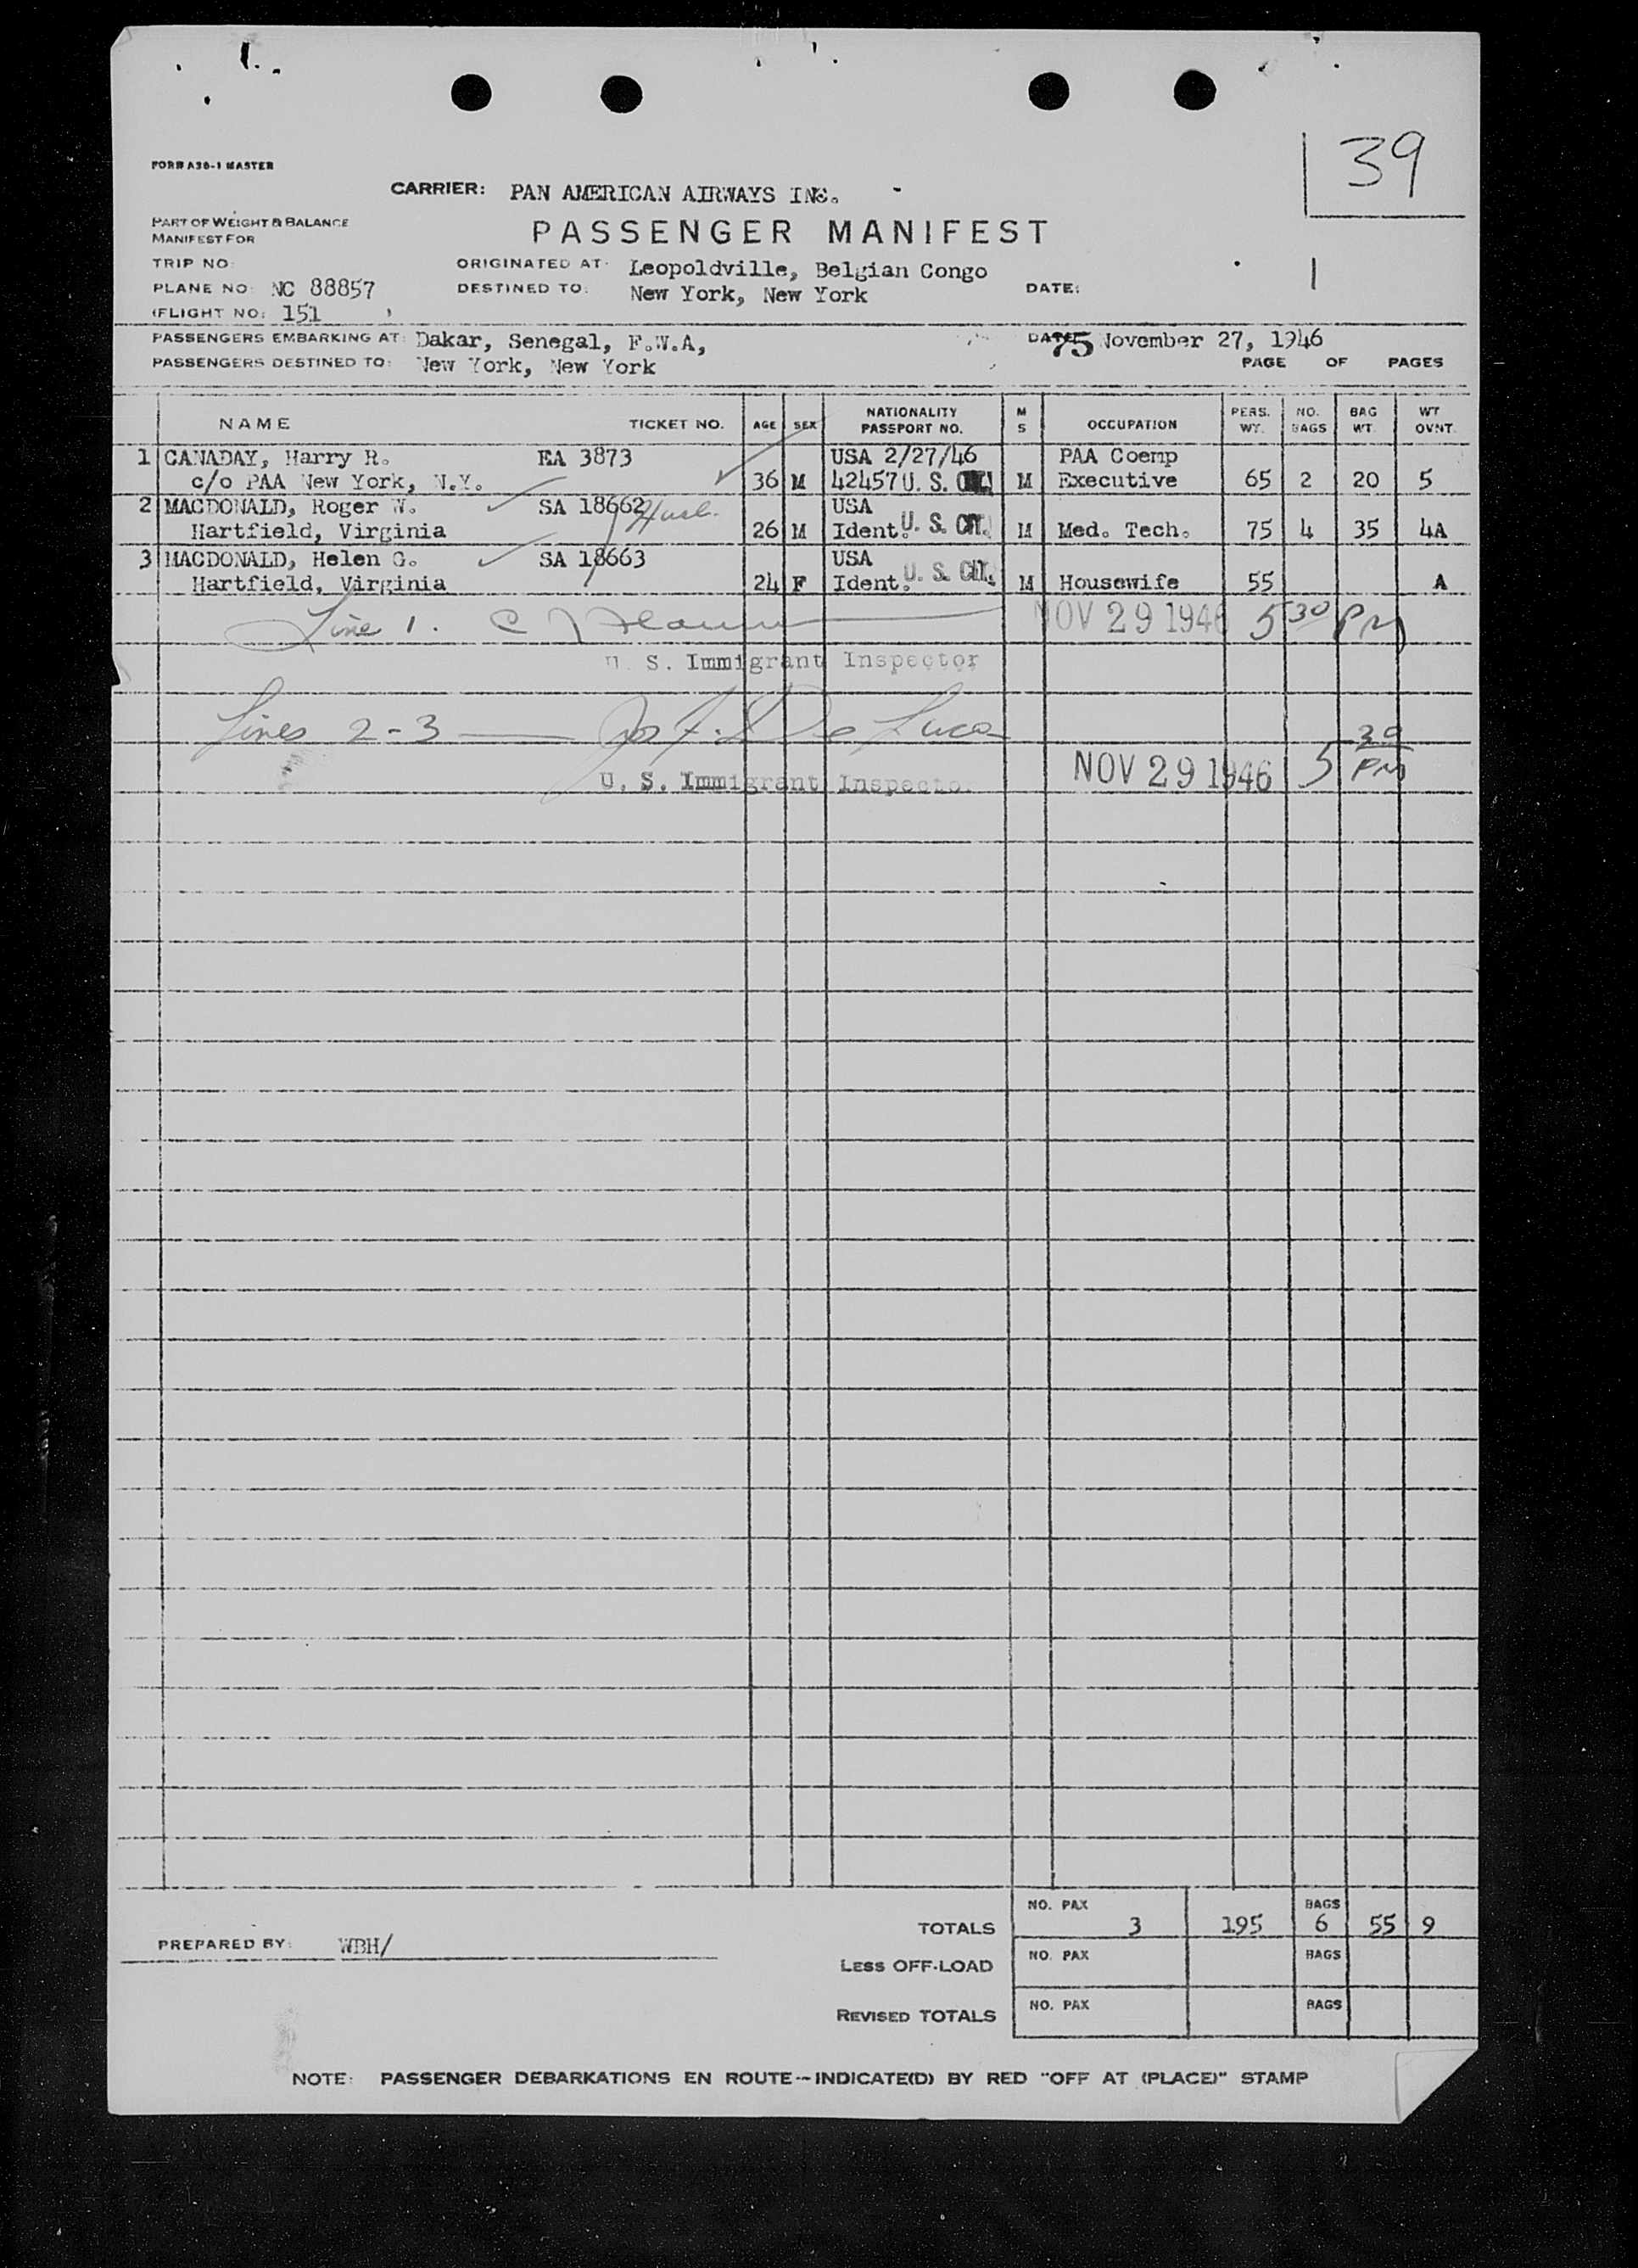 39
FORM A30-1 MASTER
CARRIER: PAN AMERICAN AIRWAYS INC.
PART OF WEIGHT & BALANCE
MANIFEST FOR
PASSENGER MANIFEST
TRIP NO: ORIGINATED AT: Leopoldville, Belgian Congo
PLANE NO: NC 88857 DESTINED TO: New York, New York DATE: 1
(FLIGHT NO: 151 )
PASSENGERS EMBARKING AT: Dakar, Senegal, F.W.A, DATE: 75 November 27, 1946
PASSENGERS DESTINED TO: New York, New York PAGE OF PAGES
NAME TICKET NO. AGE SEX NATIONALITY PASSPORT NO. M S OCCUPATION PERS. WT. NO. BAGS BAG WT. WT OVNT.
1 CANADAY, Harry R. EA 3873 USA 2/27/46 PAA Coemp
c/o PAA New York, N.Y. 36 M 42457 U. S. M Executive 65 2 20 5
2 MACDONALD, Roger W. SA 18662 Husb. USA
Hartfield, Virginia 26 M Ident. U. S. CIT. M Med. Tech. 75 4 35 4A
3 MACDONALD, Helen G. SA 18663 USA
Hartfield, Virginia 24 F Ident. U. S. CIT. M Housewife 55 A
Line 1. NOV 29 1946 5 30 PM
U. S. Immigrant Inspector
Lines 2-3 Jos. F. De Luca
U. S. Immigrant Inspector NOV 29 1946 5 30 PM
TOTALS NO. PAX 3 195 BAGS 6 55 9
PREPARED BY: WBH/
LESS OFF-LOAD NO. PAX BAGS
REVISED TOTALS NO. PAX BAGS
NOTE: PASSENGER DEBARKATIONS EN ROUTE--INDICATE(D) BY RED "OFF AT (PLACE)" STAMP